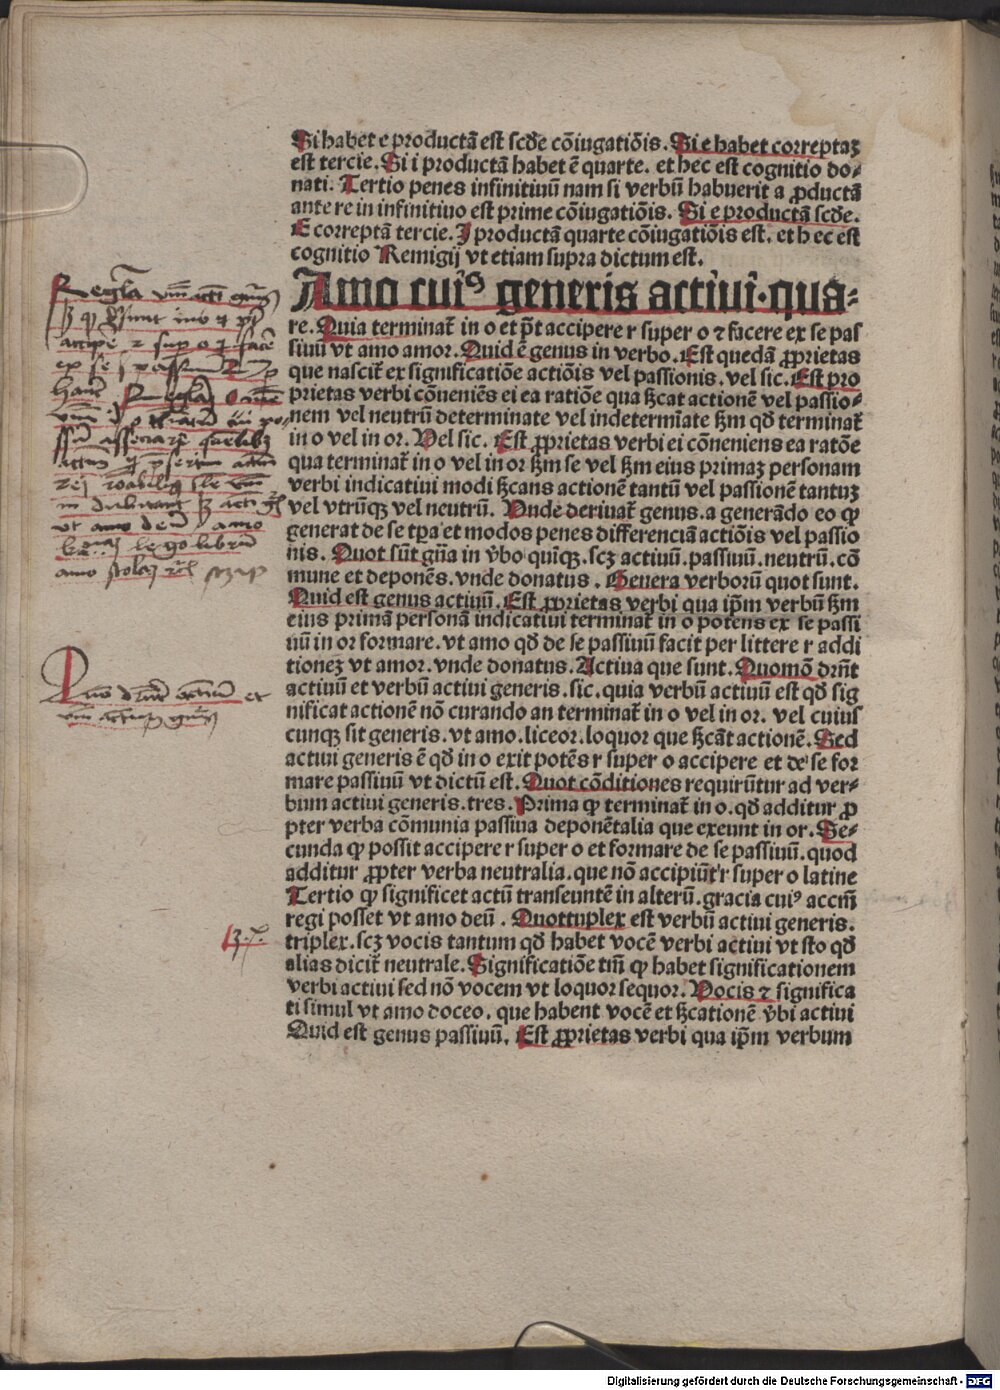 Si habet e productā est scďe cōiugatiōis. Si e habet correptaꝫ
est tercie. Si i productā habet ē quarte. et hec est cognitio do⸗
nati. Tertio penes infinitiuū nam si verbū habuerit a ꝓductā
ante re in infinitiuo est prime cōiugatiōis. Si e productā scďe.
E correptā tercie. I productā quarte cōiugatiōis est. et h ec est
cognitio Remigij vt etiam supra dictum est.
Amo cuiꝰ generis actiui. qua⸗
re. Quia terminat̄ in o et p̄t accipere r super o ⁊ facere ex se pas
siuū vt amo amor. Quid ē genus in verbo. Est quedā ꝓprietas
que nascit̄ ex significatiōe actiōis vel passionis. vel sic. Est pro
prietas verbi cōueniēs ei ea ratiōe qua ſꝫcat actionē vel passio⸗
nem vel neutrū determinate vel indetermīate ſꝫm qď terminat̄
in o vel in or. Vel sic. Est ꝓprietas verbi ei cōueniens ea ratōe
qua terminat̄ in o vel in or ſꝫm se vel ſꝫm eius primaꝫ personam
verbi indicatiui modi ſꝫcans actionē tantū vel passionē tantuꝫ
vel vtrūqꝫ vel neutrū. Vnde deriuat̄ genus. a generādo eo ꝙ
generat de se tꝑa et modos penes differenciā actiōis vel passio
nis. Quot sūt gn̄a in v̄bo quīqꝫ. scꝫ actiuū. passiuū. neutrū. cō
mune et deponēs. vnde donatus. Genera verborū quot sunt.
Quid est genus actiuū. Est ꝓprietas verbi qua ip̄m verbū ſꝫm
eius primā personā indicatiui terminat̄ in o potens ex se passi
uū in or formare. vt amo qď de se passiuū facit per littere r addi
tioneꝫ vt amor. vnde donatus. Actiua que sunt. Quomō drn̄t
actiuū et verbū actiui generis. sic. quia verbū actiuū est qď sig
nificat actionē nō curando an terminat̄ in o vel in or. vel cuius
cunqꝫ sit generis. vt amo. liceor. loquor que ſꝫcāt actionē. Sed
actiui generis ē qď in o exit potēs r super o accipere et de se for
mare passiuū vt dictū est. Quot cōditiones requirūtur ad ver⸗
bum actiui generis. tres. Prima ꝙ terminat̄ in o. qď additur ꝓ
pter verba cōmunia passiua deponētalia que exeunt in or. Se⸗
cunda ꝙ possit accipere r super o et formare de se passiuū. quod
additur ꝓpter verba neutralia. que nō accipiūt r super o latine
Tertio ꝙ significet actū transeuntē in alterū. gracia cuiꝰ accm̄
regi posset vt amo deū. Quottuplex est verbū actiui generis.
triplex. scꝫ vocis tantum qď habet vocē verbi actiui vt sto qď
alias dicit̄ neutrale. Significatiōe tm̄ ꝙ habet significationem
verbi actiui sed nō vocem vt loquor sequor. Vocis ⁊ significa
ti simul vt amo doceo. que habent vocē et ſꝫcationē v̄bi actiui
Quid est genus passiuū. Est ꝓprietas verbi qua ip̄m verbum
Digitalisierung gefördert durch die Deutsche Forschungsgemeinschaft - DFG